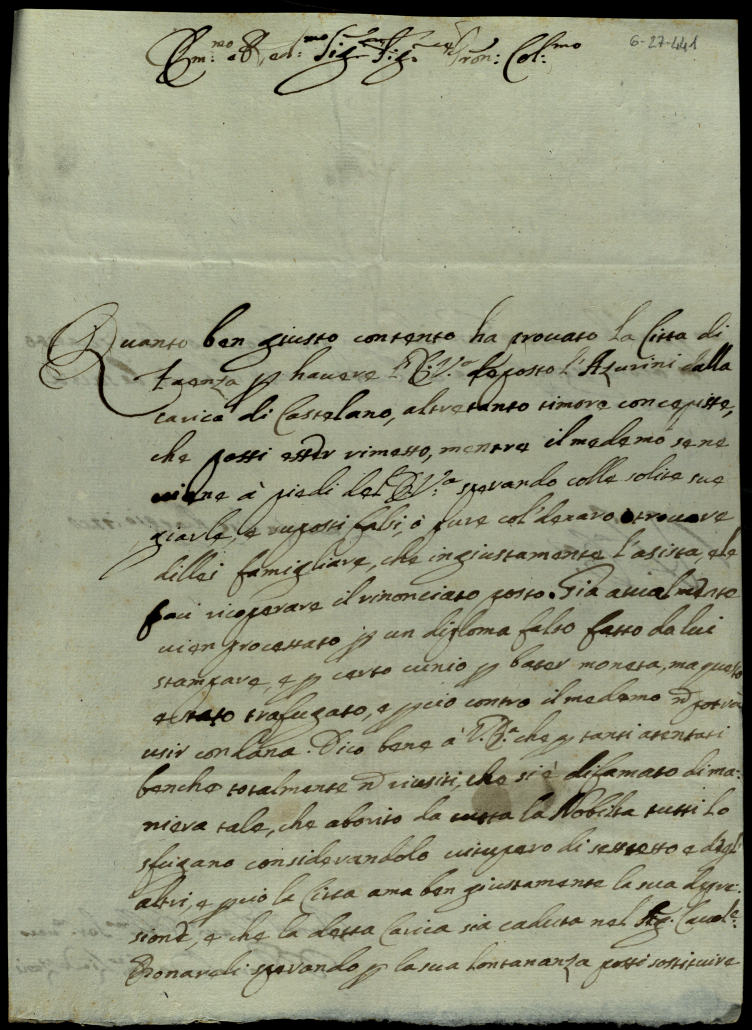 Em:mo e R, ed:mo Sig:r Sig:r Pron: Col:mo
6-27-441
Quanto ben giusto contento ha trovato la Citta di
Faenza p havere l'E: V:a deposto l'Azurini dalla
carica di Castelano, altretanto timore concepisse,
che possi esser rimesso, mentre il medemo sene
viene à piedi del E: V:a sperando colle solite sue
ciarle, e suposti falsi, ò pure col denaro trovare
dillei famigliare, che ingiustamente l'asista, e le
faci ricoperare il rinonciato posto. Gia atualmente
vien processato p un diploma falso fatto da lui
stampare, e p certo cunio p bater moneta, ma questo
e stato trafugato, e pciò contro il medemo n potrà
usir condana. Dico bene à V. E:a che p tanti atentati
benche totalmente n riusiti, che si è difamato di ma:
niera tale, che aborito da tutta la Nobilta tutti lo
sfugano considerandolo vitupero di se stesso e degl
altri, e pciò la Citta ama ben giustamente la sua depre:
sione, e che la detta Carica sia caduta nel Sig: Caval:e
sperando p la sua lontananza possi sostituire